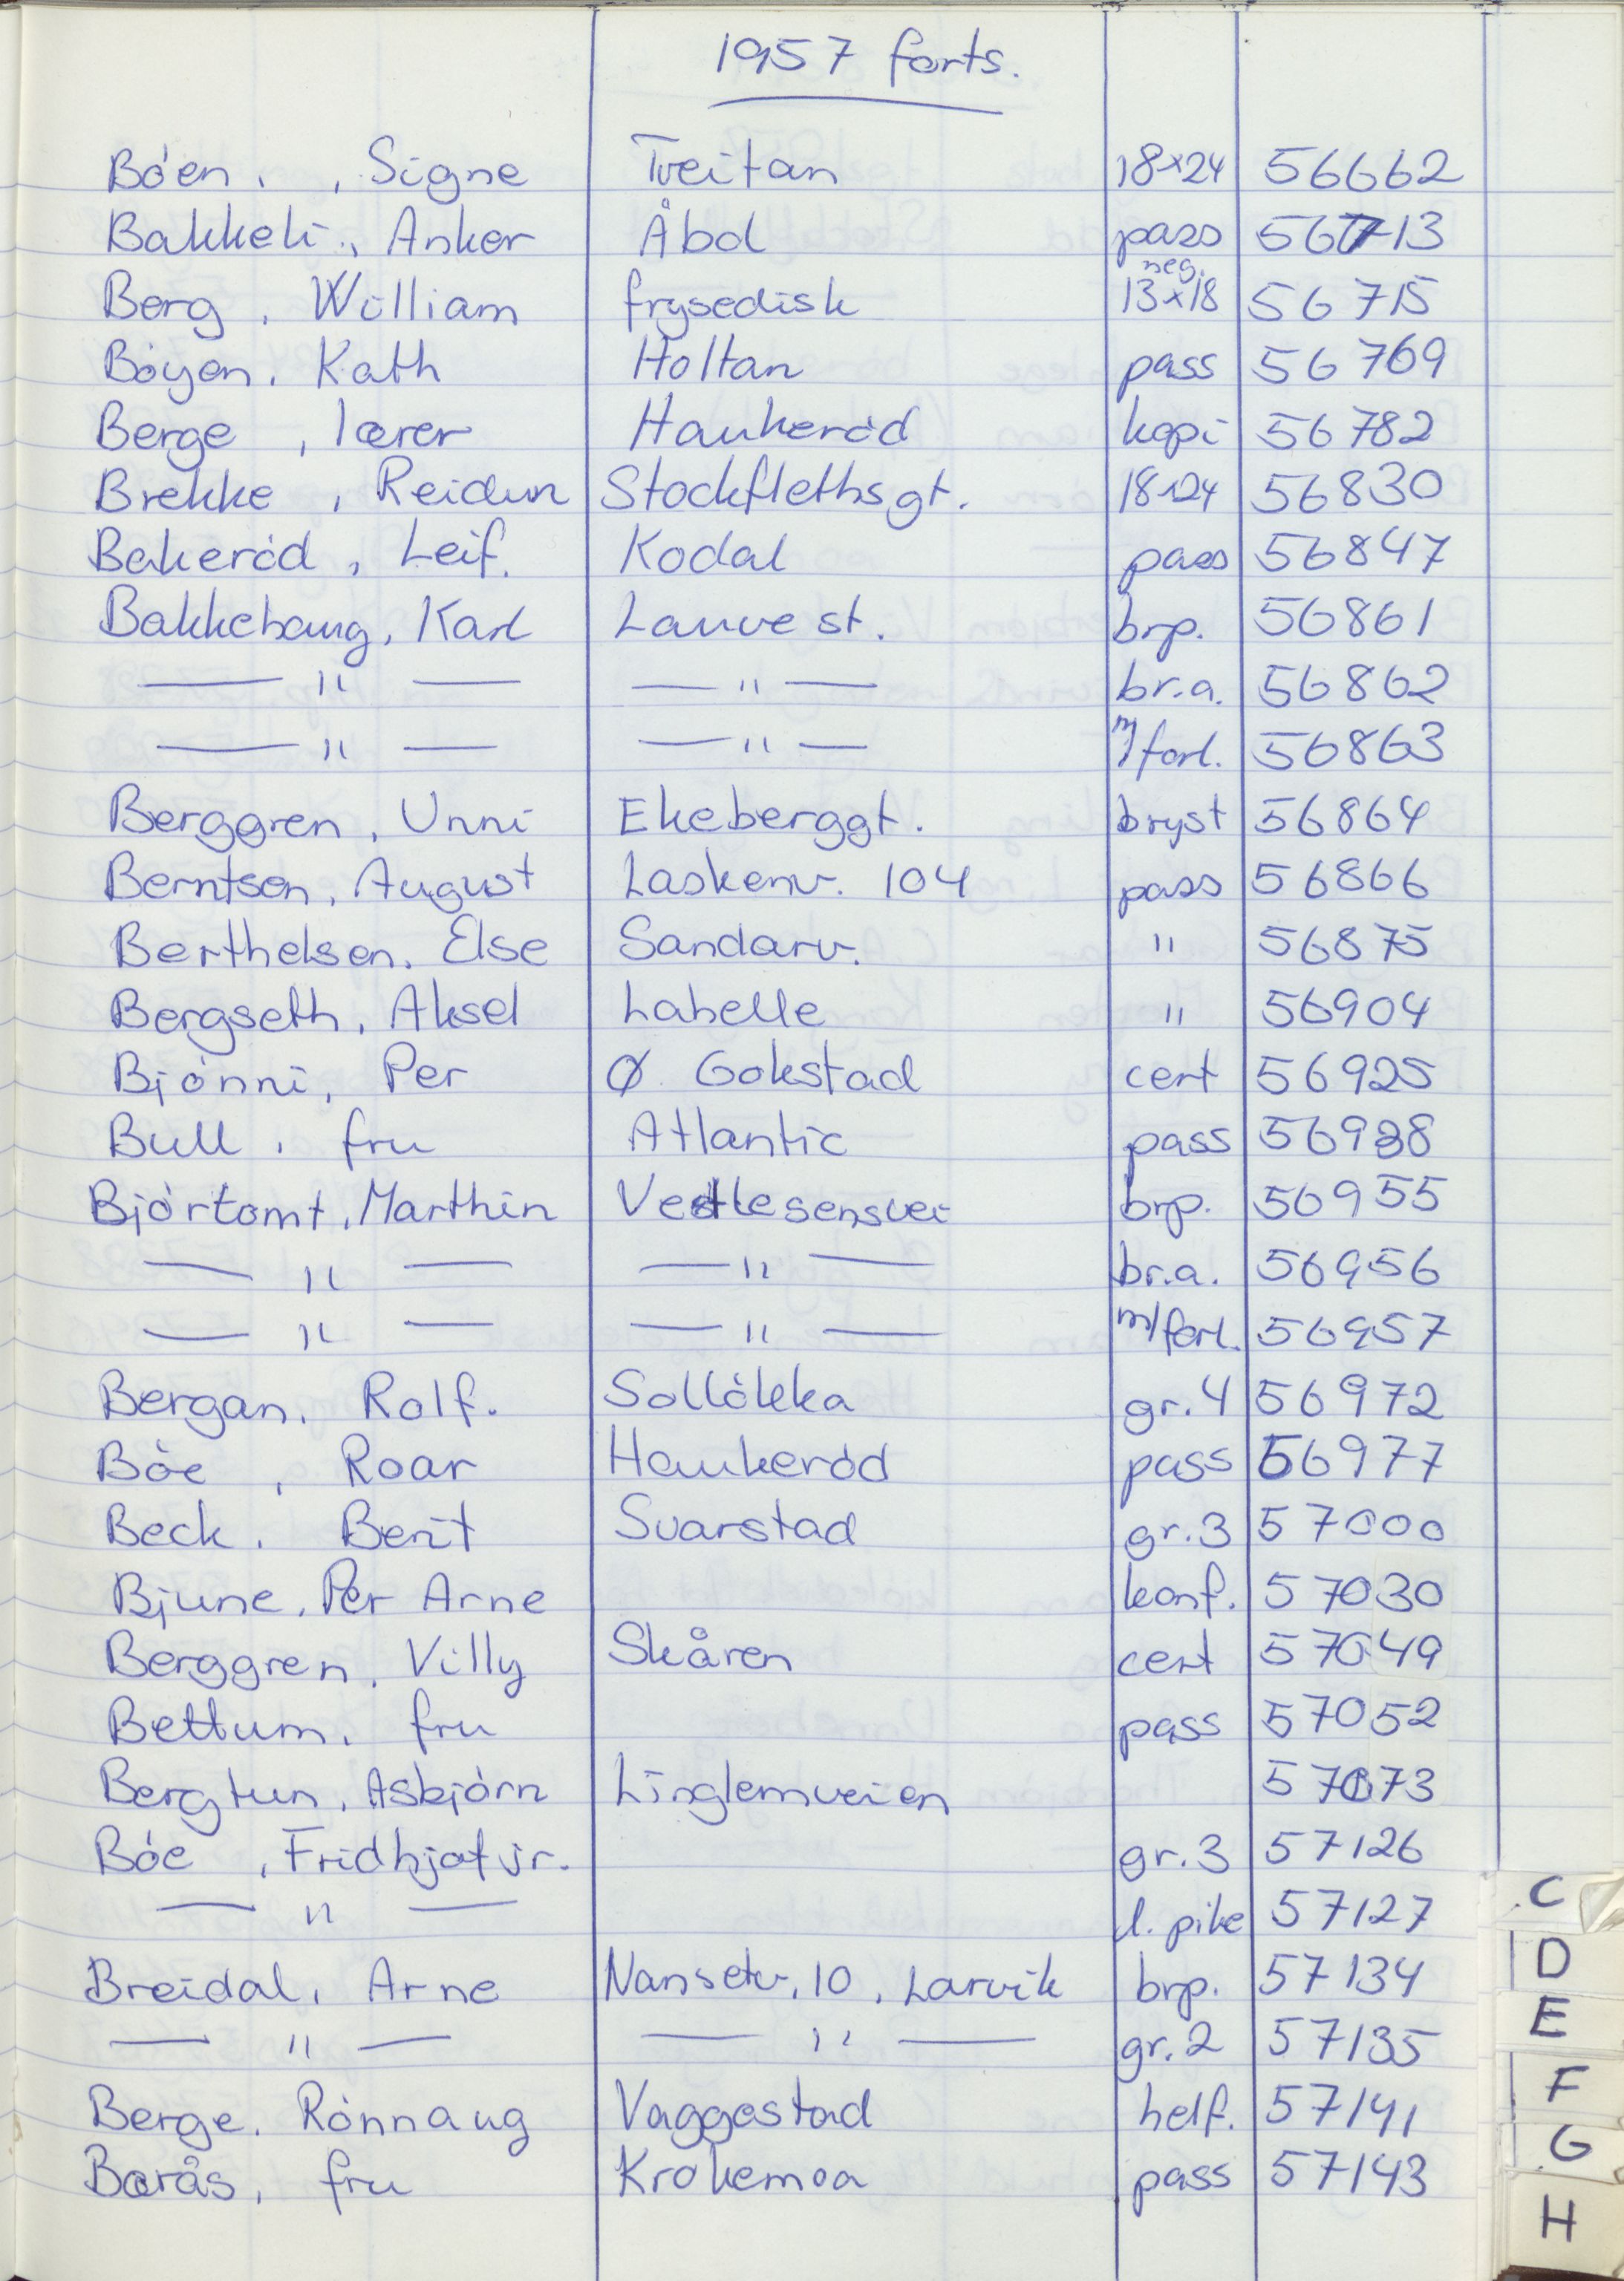 1957 forts.
Bóen, , Signe Tveitan 18x24 56662
Bakkeli, Anker Åbol pass 56713
Berg, William frysedisk neg. 13x18 56715
Bóyen, Kath Holtan pass 56769
Berge , lærer Haukeród kopi 56782
Brekke , Reidun Stockflethsgt. 18x24 56830
Bakeród, Leif. Kodal pass 56847
Bakkehaug, Karl Lauve st. brp. 56861
— " — — " — br.a. 56862
— " — — " — m/forl. 56863
Berggren, Unni Ekeberggt. bryst 56864
Berntsen, August Laskenv. 104 pass 56866
Berthelsen, Else Sandarv. " 56875
Bergseth, Aksel Labelle " 56904
Bjónni, Per Ø. Gokstad cert 56925
Bull, fru Atlantic pass 56938
Bjórtomt, Marthin Vestlesensvei brp. 56955
— " — — " — br.a. 56956
— " — — " — m/forl. 56957
Bergan, Rolf. Sollókka gr.4 56972
Bóe , Roar Haukeród pass 56977
Beck, Berit Svarstad gr.3 57000
Bjune, Per Arne konf. 57030
Berggren, Villy Skåren cert 57049
Bettum, fru pass 57052
Bergtun, Asbjórn Linglemveien 57073
Bóe , Fridhjof jr. gr.3 57126
— " — l. pike 57127
Breidal, Arne Nansetv. 10, Larvik brp. 57134
— " — — " — gr.2 57135
Berge, Rónnaug Vaggestad helf. 57141
Barås, fru Krokemoa pass 57143
C
D
E
F
G
H